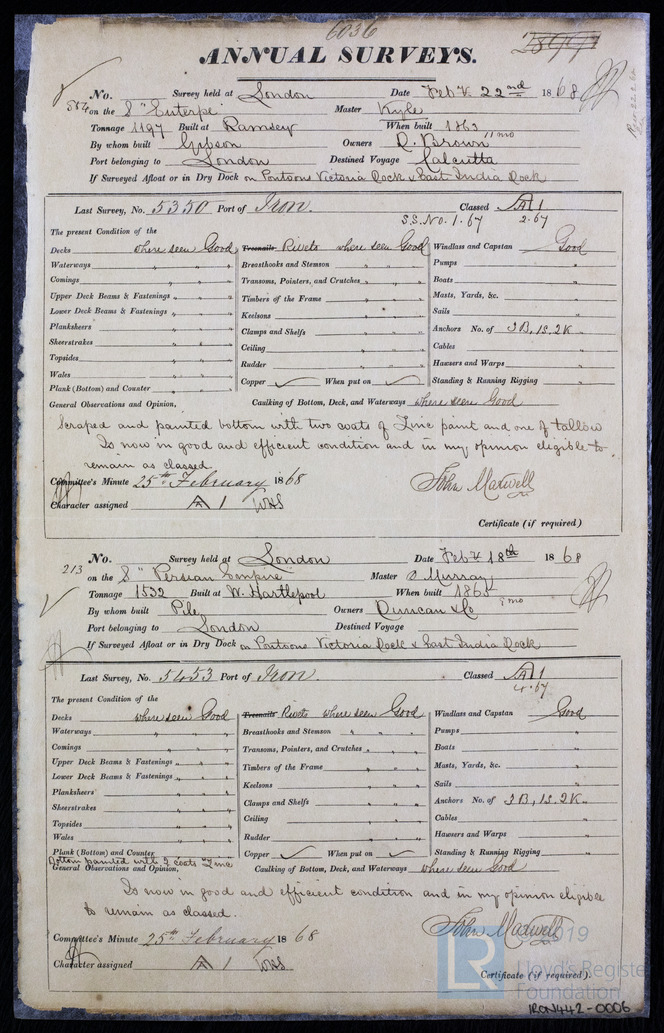 6036
ANNUAL SURVEYS.
No. Survey held at London Date Feby 22nd 1868
on the S "Euterpe" Master Kyle
Tonnage 1197 Built at Ramsey When built 1863 11 mo
By whom built Gibson Owners D. Brown
Port belonging to London Destined Voyage Calcutta
If Surveyed Afloat or in Dry Dock on Pontoons Victoria Dock & East India Dock
Last Survey, No. 5350 Port of Iron. Classed A 1
S.S. No. 1. 67 2.67
The present Condition of the
Decks where seen Good Treenails Rivets where seen Good Windlass and Capstan Good
Waterways " " Breasthooks and Stemson " " Pumps "
Comings " " Transoms, Pointers, and Crutches " " Boats "
Upper Deck Beams & Fastenings " " Timbers of the Frame " " Masts, Yards, &c. "
Lower Deck Beams & Fastenings " " Keelsons " " Sails "
Planksheers " " Clamps and Shelfs " " Anchors No. of 3B, 1S, 2K "
Sheerstrakes " " Ceiling " " Cables "
Topsides " " Rudder " " Hawsers and Warps "
Wales " " Copper When put on Standing & Running Rigging "
Plank (Bottom) and Counter " "
General Observations and Opinion, Caulking of Bottom, Deck, and Waterways where seen Good
Scraped and painted bottom with two coats of Zinc paint and one of tallow
Is now in good and efficient condition and in my opinion eligible to
remain as classed.
Committee's Minute 25th February 1868 John Maxwell
Character assigned A 1 WHS
Certificate (if required)
No. Survey held at London Date Feby 18th 1868
213
on the S "Persian Empire" Master D Murray
Tonnage 1532 Built at W. Hartlepool When built 1865 mo
By whom built Pile Owners Duncan & Co
Port belonging to London Destined Voyage
If Surveyed Afloat or in Dry Dock on Pontoons Victoria Dock & East India Dock
Last Survey, No. 5453 Port of Iron. Classed A 1
4.67
The present Condition of the
Decks where seen Good Treenails Rivets where seen Good Windlass and Capstan Good
Waterways " " Breasthooks and Stemson " " Pumps "
Comings " " Transoms, Pointers, and Crutches " " Boats "
Upper Deck Beams & Fastenings " " Timbers of the Frame " " Masts, Yards, &c. "
Lower Deck Beams & Fastenings " " Keelsons " " Sails "
Planksheers " " Clamps and Shelfs " " Anchors No. of 3B, 1S, 2K "
Sheerstrakes " " Ceiling " " Cables "
Topsides " " Rudder " " Hawsers and Warps "
Wales " " Copper When put on Standing & Running Rigging "
Plank (Bottom) and Counter
Bottom painted with 2 coats Zinc
General Observations and Opinion, Caulking of Bottom, Deck, and Waterways where seen Good
Is now in good and efficient condition and in my opinion eligible
to remain as classed.
Committee's Minute 25th February 1868 John Maxwell
Character assigned A 1 WHS
Certificate (if required).
LR
2019
Lloyd's Register
Foundation
IRON442-0006